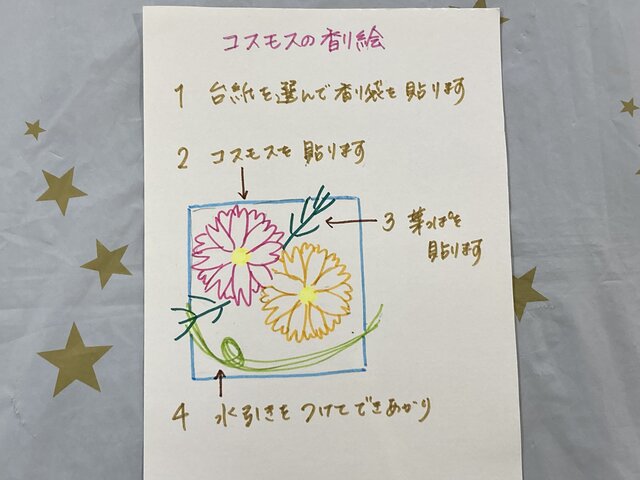 コスモスの香り絵
1 台紙を選んで香り袋を貼ります
2 コスモスを貼ります
3 葉っぱを
貼ります
4 水引きをつけてできあがり